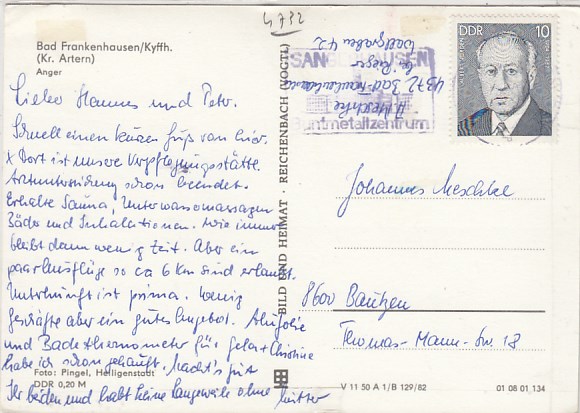 4732
Bad Frankenhausen/Kyffh.
(Kr. Artern)
Anger
Lieber Hannes und Petr.
Schnell einen kurzen Gruß von hier.
x Dort ist unsere Verpflegungsstätte.
Arztuntersuchung schon beendet.
Erhalte Sauna, Unterwassermassagen
Bäder und Inhalationen. Wie immer
bleibt dann wenig Zeit. Aber ein
paar Ausflüge so ca 6 km sind erlaubt.
Unterkunft ist prima. Wenig
Geschäfte aber ein gutes Angebot. Alufolie
und Badethermometer für Gela + Christine
habe ich schon gekauft. Macht's gut
Ihr beiden und habt keine Langeweile ohne Mutter
Foto: Pingel, Heiligenstadt
DDR 0,20 M
BILD UND HEIMAT · REICHENBACH (VOGTL)
A. Meschke
bei Rieger
4732 Bad Frankenhausen
Wallgraben 42
SANGERHAUSEN
Buntmetallzentrum
DDR 10
Johannes Meschke
8600 Bautzen
Thomas-Mann-Str. 18
V 11 50 A 1/B 129/82
01 08 01 134